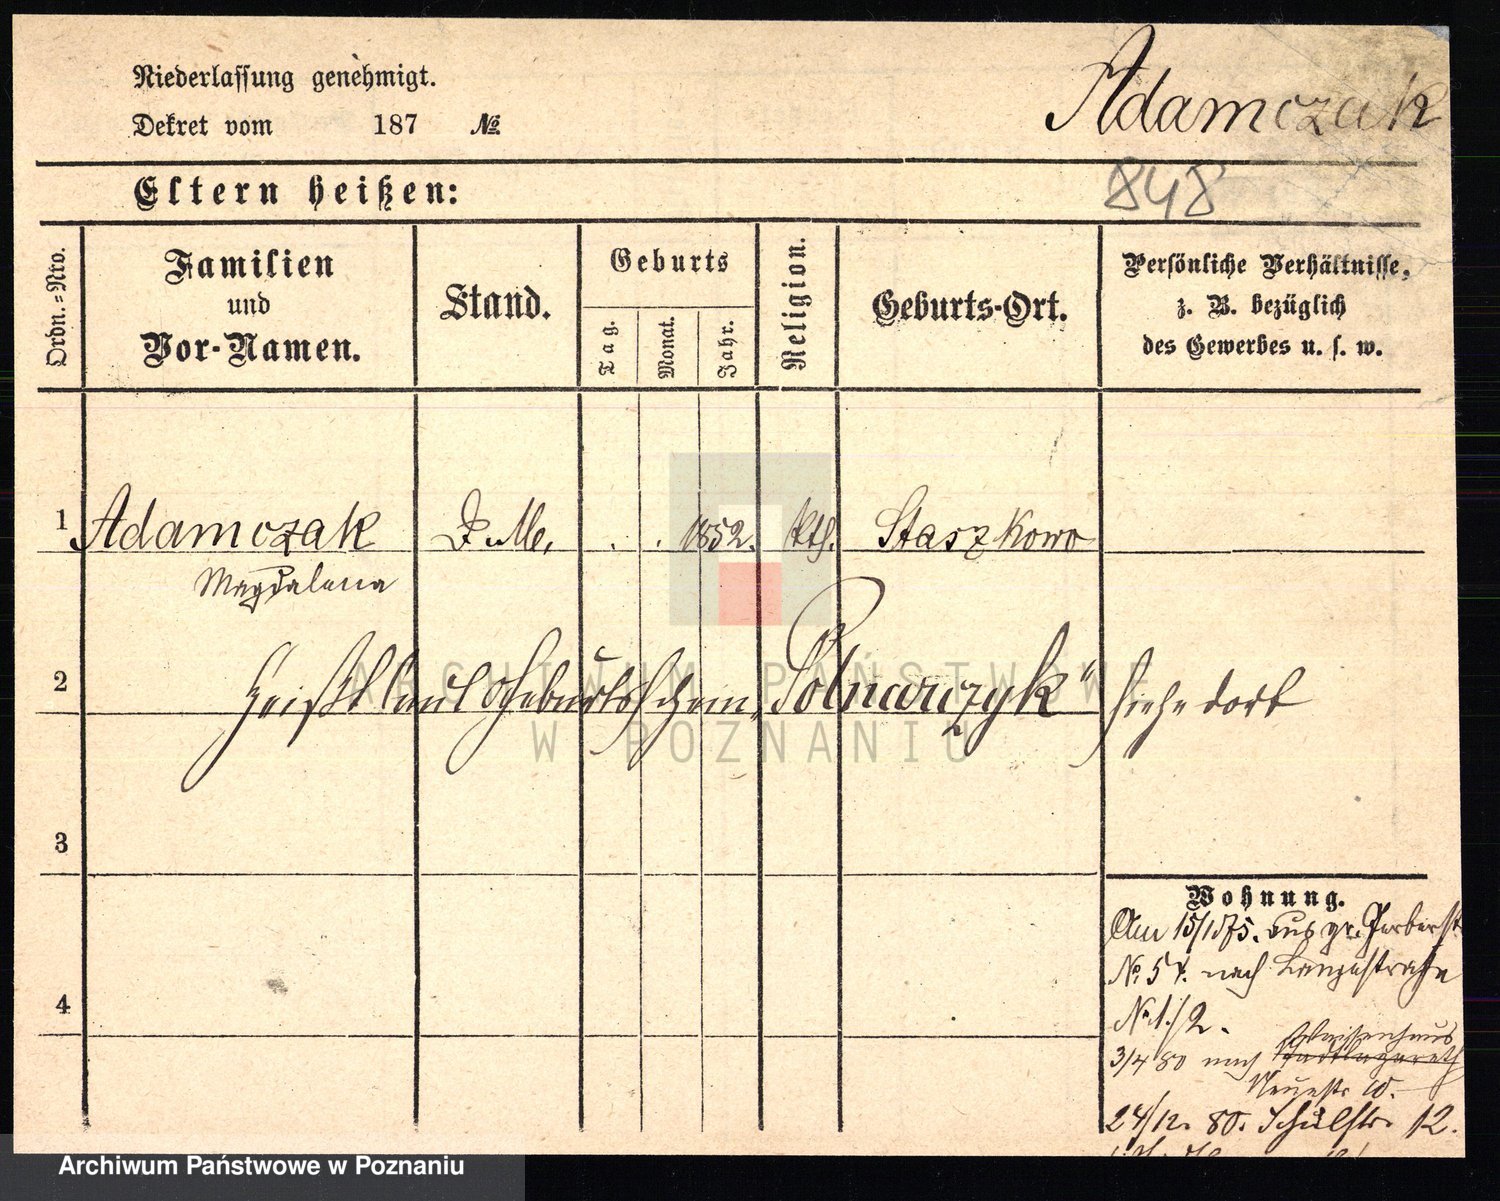 Niederlassung genehmigt.
Dekret vom 187 №
Adamczak
Eltern heißen:
848
Ordn.=Nro.
Familien
und
Vor-Namen.
Stand.
Geburts
Tag.
Monat.
Jahr.
Religion.
Geburts-Ort.
Persönliche Verhältnisse,
z. B. bezüglich
des Gewerbes u. s. w.
1 Adamczak D. M. . . 1852. kth. Staszkowo
Magdalena
2 heißt laut Geburtsschein „Polnarczyk" siehe dort
3
4
Wohnung.
Am 15/1 75. aus gr. Gerberst.
No. 54. nach Langestraße
No. 1/2.
Waisenhaus
3/4 80 nach Stadtlazareth
Neuestr 10.
24/12. 80. Schulstr. 12.
ARCHIWUM PAŃSTWOWE
W POZNANIU
Archiwum Państwowe w Poznaniu